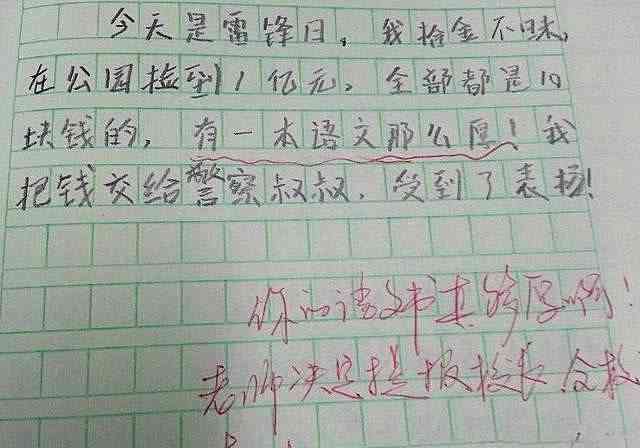 今天是雷锋日,我拾金不昧,
在公园捡到1亿元,全部都是10
块钱的,有一本语文那么厚!我
把钱交给警察叔叔,受到了表扬!
你的语文书真够厚啊!
老师决定提报校长全校